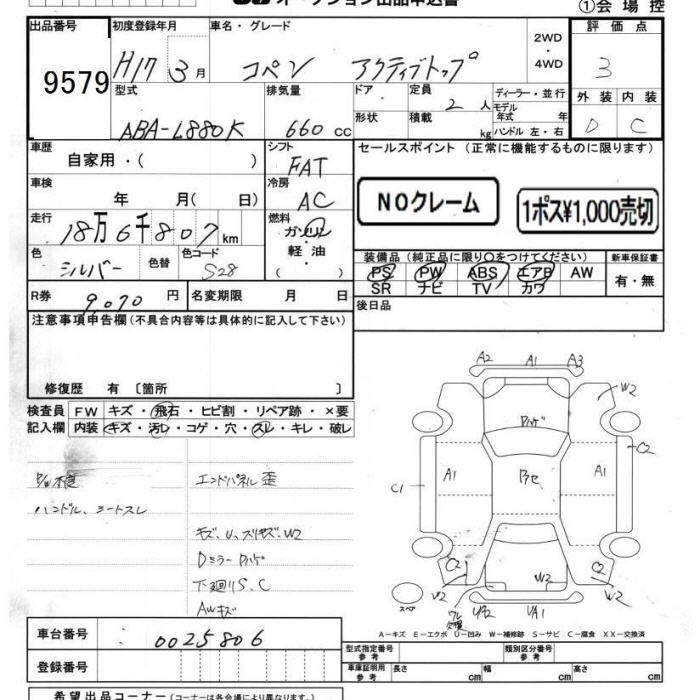 オークション出品申込書
①会場控
出品番号 初度登録年月 車名・グレード 評価点
9579
H17 3月 コペン アクティブトップ
2WD
・
4WD
3
型式 排気量 ドア 定員 ディーラー・並行 外装 内装
ABA-L880K 660cc 2人 モデル
年式 年
形状 積載 kg ハンドル 左・右
D C
車歴 自家用・( ) シフト FAT
セールスポイント (正常に機能するものに限ります)
車検 年 月( 日) 冷房 AC
NOクレーム 1ポス¥1,000売切
走行 18万6千807km 燃料 ガソリン
軽油
( )
色 シルバー 色替 色コード S28
装備品(純正品に限り○をつけてください) 新車保証書
PS PW ABS エアB AW 有・無
SR ナビ TV カワ
R券 9,070円 名変期限 月 日
後日品
注意事項申告欄(不具合内容等は具体的に記入して下さい)
修復歴 有 〔箇所 〕
検査員 FW キズ・飛石・ヒビ割・リペア跡・×要
記入欄 内装 キズ・汚レ・コゲ・穴・スレ・キレ・破レ
エンドパネル 歪
ハンドル、シートスレ
キズ、U、スリキズ、W2
Dミラー
下廻りS、C
AWキズ
A2 A1 A3
W2
C2
C1 A1 A1
C2 C2
W2 W2 W2
UA2 UA1
スペア
A-キズ E-エクボ U-凹み W-補修跡 S-サビ C-腐食 XX-交換済
車台番号 0025806
登録番号
型式指定番号 参考 類別区分番号 参考
車庫証明用 参考 長さ cm 幅 cm 高さ cm
希望出品コーナー(コーナーは各会場により異なります)